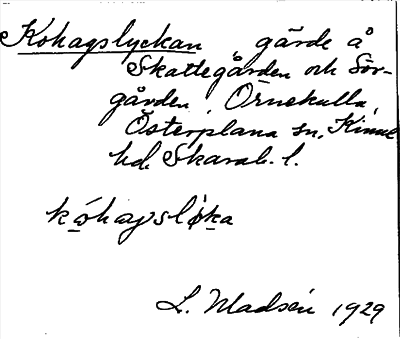 Kohagslyckan, gärde å
Skattegården och Sör-
gården, Örnekulla,
Österplana sn, Kinne
hd. Skarab. l.
kóhagslyka
L. Madsén 1929